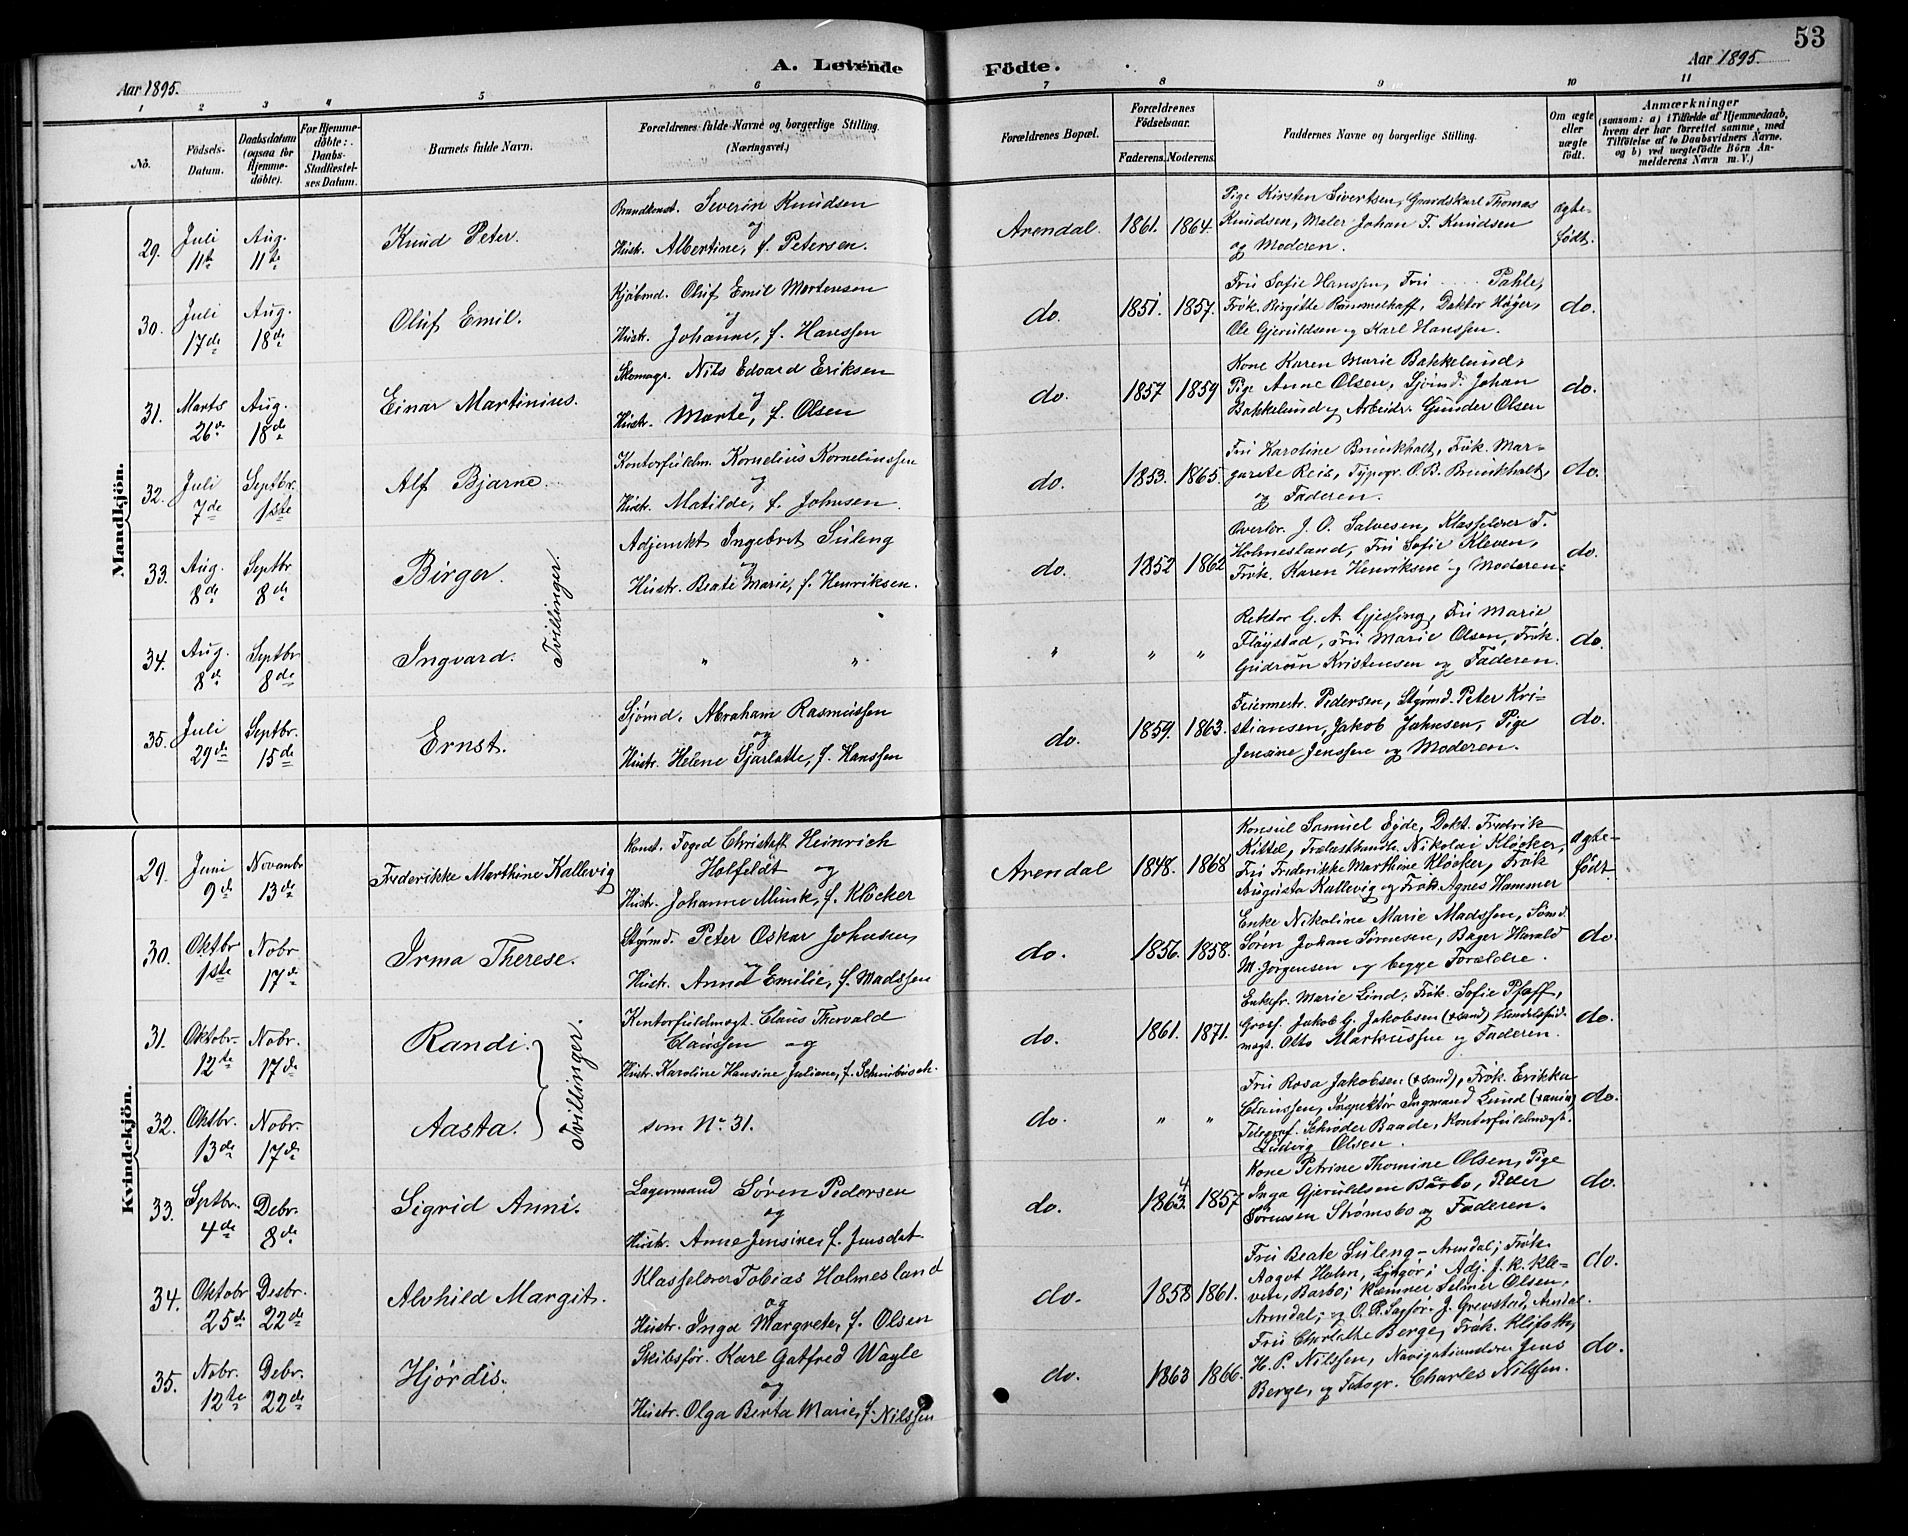 53
A. Levende Födte.
Aar 1895.
Aar 1895.
1 2 3 4 5 6 7 8 9 10 11
No.
Födsels-Datum.
Daabsdatum (ogsaa for Hjemme-döbte).
For Hjemme-döbte: Daabs-Stadfæstel-ses Datum.
Barnets fulde Navn.
Forældrenes fulde Navne og borgerlige Stilling. (Næringsvei.)
Forældrenes Bopæl.
Forældrenes Födselsaar.
Faderens. Moderens.
Faddernes Navne og borgerlige Stilling.
Om ægte eller uægte födt.
Anmærkninger
(saasom: a) i Tilfælde af Hjemmedaab, hvem der har forrettet samme, med Tilföielse af to Daabsvidners Navne. og b) ved uægtefödte Börn An-melderens Navn m. V.)
Mandkjön.
29. Juli 11te Aug. 11te
Knud Peter.
Brandkonst. Severin Knudsen
og
Hustr. Albertine, f. Petersen.
Arendal. 1861. 1864.
Pige Kirsten Sivertsen, Gaardskarl Thomas
Knudsen, Maler Johan F. Knudsen
og Moderen.
ægte-
født.
30. Juli 17de Aug. 18de
Oluf Emil.
Kjøbmd. Oluf Emil Mortensen
og
Hustr. Johanne, f. Hanssen
do. 1851. 1857.
Fru Sofie Hanssen, Fru Pahle,
Frøk. Birgitte Rommelhoff, Doktor Høyer,
Ole Gjeruldsen og Karl Hanssen.
do.
31. Marts 26de Aug. 18de
Einar Martinius.
Skomagr. Nils Edvard Eriksen
og
Hustr. Marte, f. Olsen
do. 1857 1859
Kone Karen Marie Bakkelund,
Pige Anne Olsen, Sjømd. Johan
Bakkelund og Arbeidr. Gunder Olsen
do.
32. Juli 7de Septbr. 1ste
Alf Bjarne.
Kontorfuldm. Kornelius Korneliussen
og
Hustr. Matilde, f. Johnsen.
do. 1853. 1865.
Fru Karoline Brunkhalt, Frøk. Mar-
garete Reis, Typogr. O. B. Brunkhalt,
og Faderen.
do.
33. Aug. 8de Septbr 8de
Birger.
Tvilinger.
Adjunkt Ingebret Suleng
og
Hustr. Beate Marie, f. Henriksen.
do. 1852 1862
Overlær. J. O. Salvesen, Klasselærer T.
Holmesland, Fru Sofie Kleven,
Frøk. Karen Henriksen og Moderen.
do.
34. Aug. 8de Septbr 8de
Ingvard.
" "
" " "
Rektor G. A. Gjessing, Fru Marie
Fløystad, Fru Marie Olsen, Frøk.
Gudrun Kristensen og Faderen.
do.
35. Juli 29de Septbr. 15de
Ernst.
Sjømd. Abraham Rasmussen
og
Hustr. Helene Sjarlotte, f. Hanssen
do. 1859. 1863.
Feiermestr. Pedersen, Styrmd. Peter Kri-
stiansen, Jakob Johnsen, Pige
Jensine Jenssen og Moderen.
do.
Kvindekjön.
29. Juni 9de Novembr 13de
Frederikke Marthine Kallevig
Konst. Foged Christoff Heinrich
Holfeldt og
Hustr. Johanne Munk, f. Klöcker
Arendal 1848. 1868
Konsul Samuel Eyde, Dokt. Fredrik
Kittel, Trælasthandl. Nikolai Klöcker,
Fru Frederikke Marthine Klöcker, Frøk
Augusta Kallevig og Frøk. Agnes Hammer
ægte-
født.
30. Oktbr 1ste Nobr. 17de
Irma Therese.
Styrmd. Peter Oskar Johnsen,
og
Hustr. Anna Emilie, f. Madssen
do. 1856. 1858.
Enke Nikoline Marie Madssen, Sømd.
Søren Johan Sørensen, Bager Harald
M. Jørgensen og begge Forældre.
do.
31. Oktobr. 12te Nobr. 17de
Randi.
Tvillinger.
Kontorfuldmægt. Claus Thorvald
Claussen og
Hustr. Karoline Hansine Juliane, f. Schnibusch.
do. 1861. 1871.
Enkefr. Marie Lind, Frøk. Sofie Pfaff,
Gross. Jakob G. Jakobsen Handelsfuld-
mægt. Otto Markussen og Faderen.
do.
32. Oktbr. 13de Nobr. 17de
Aasta.
som No. 31.
do. " "
Fru Rosa Jakobsen Frøk. Erikka
Claussen, Inspektør Ingmand Lund
Telegraf. Schrøder Baade, Kontorfuldmægt.
Ludvig Olsen.
do.
33. Septbr. 4de Debr. 8de
Sigrid Anni.
Lagermand Søren Pedersen
og
Hustr. Anne Jensine, f. Jensdat.
do. 18634. 1857
Kone Petrine Thomine Olsen, Pige
Inga Gjeruldsen Barbo, Peder
Sørensen Strømsbo og Faderen.
do.
34. Oktobr 25de Desbr. 22de
Alvhild Margit.
Klasselærer Tobias Holmesland
og
Hustr. Inga Margrete, f. Olsen
do. 1858 1861.
Fru Beate Suleng - Arendal; Frøk.
Aagot Holm, Lyngør; Adj. J. K. Kle-
ven, Barbo; Kæmner Selmer Olsen,
Arendal; og O. R. Sagfør. J. Grevstad, Arendal.
do.
35. Nobr. 12te Debr. 22de
Hjørdis.
Skibsfør. Karl Gotfred Wayle
og
Hustr. Olga Berta Marie, f. Nilssen
do. 1863 1866.
Fru Charlotte Berge, Frøk. Klifoth,
H. P. Nilssen, Navigationslærer Jens
Berge, og Fotogr. Charles Nilssen.
do.